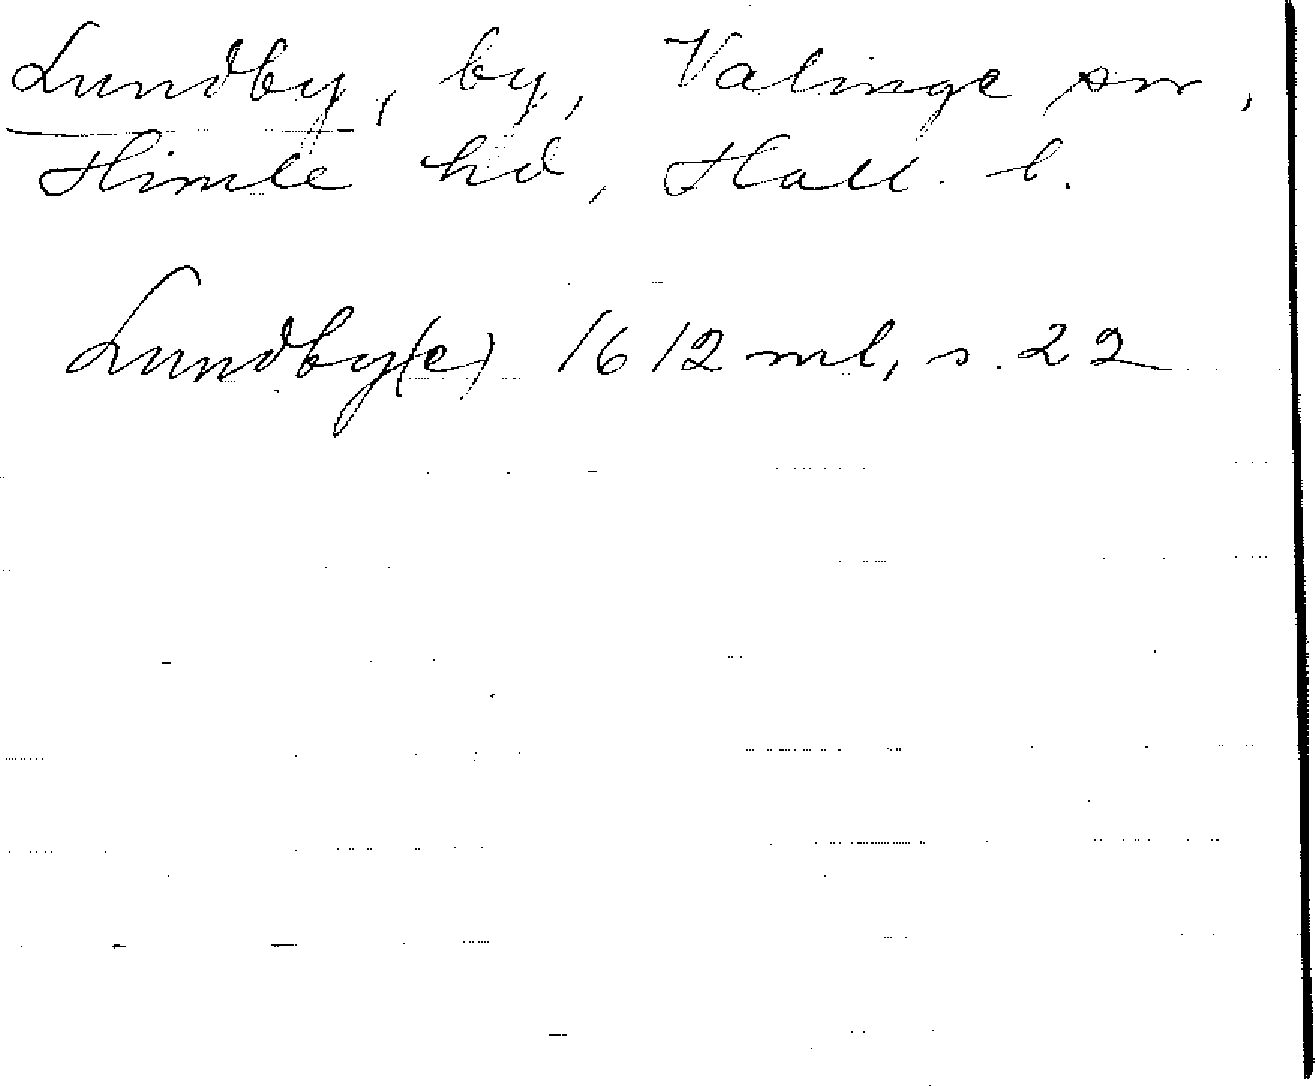 Lundby, by, Valinge sn,
Himle hd, Hall. l.
Lundby(e) 1612 ml, s. 22